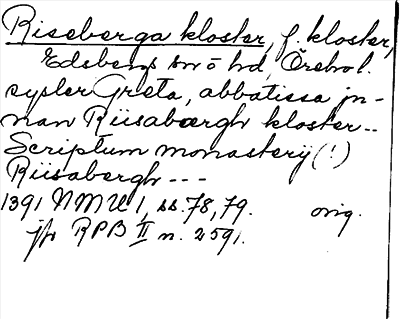 Riseberga kloster, f. kloster,
Edsbergs sn o hd, Örebro l.
sysler Greta, abbatissa jn-
nan Riisabærgh kloster--
Scriptum monasterij (!)
Riisabergh ---
1391 NMU 1, ss. 78, 79. orig.
jfr RPB II n. 2591.